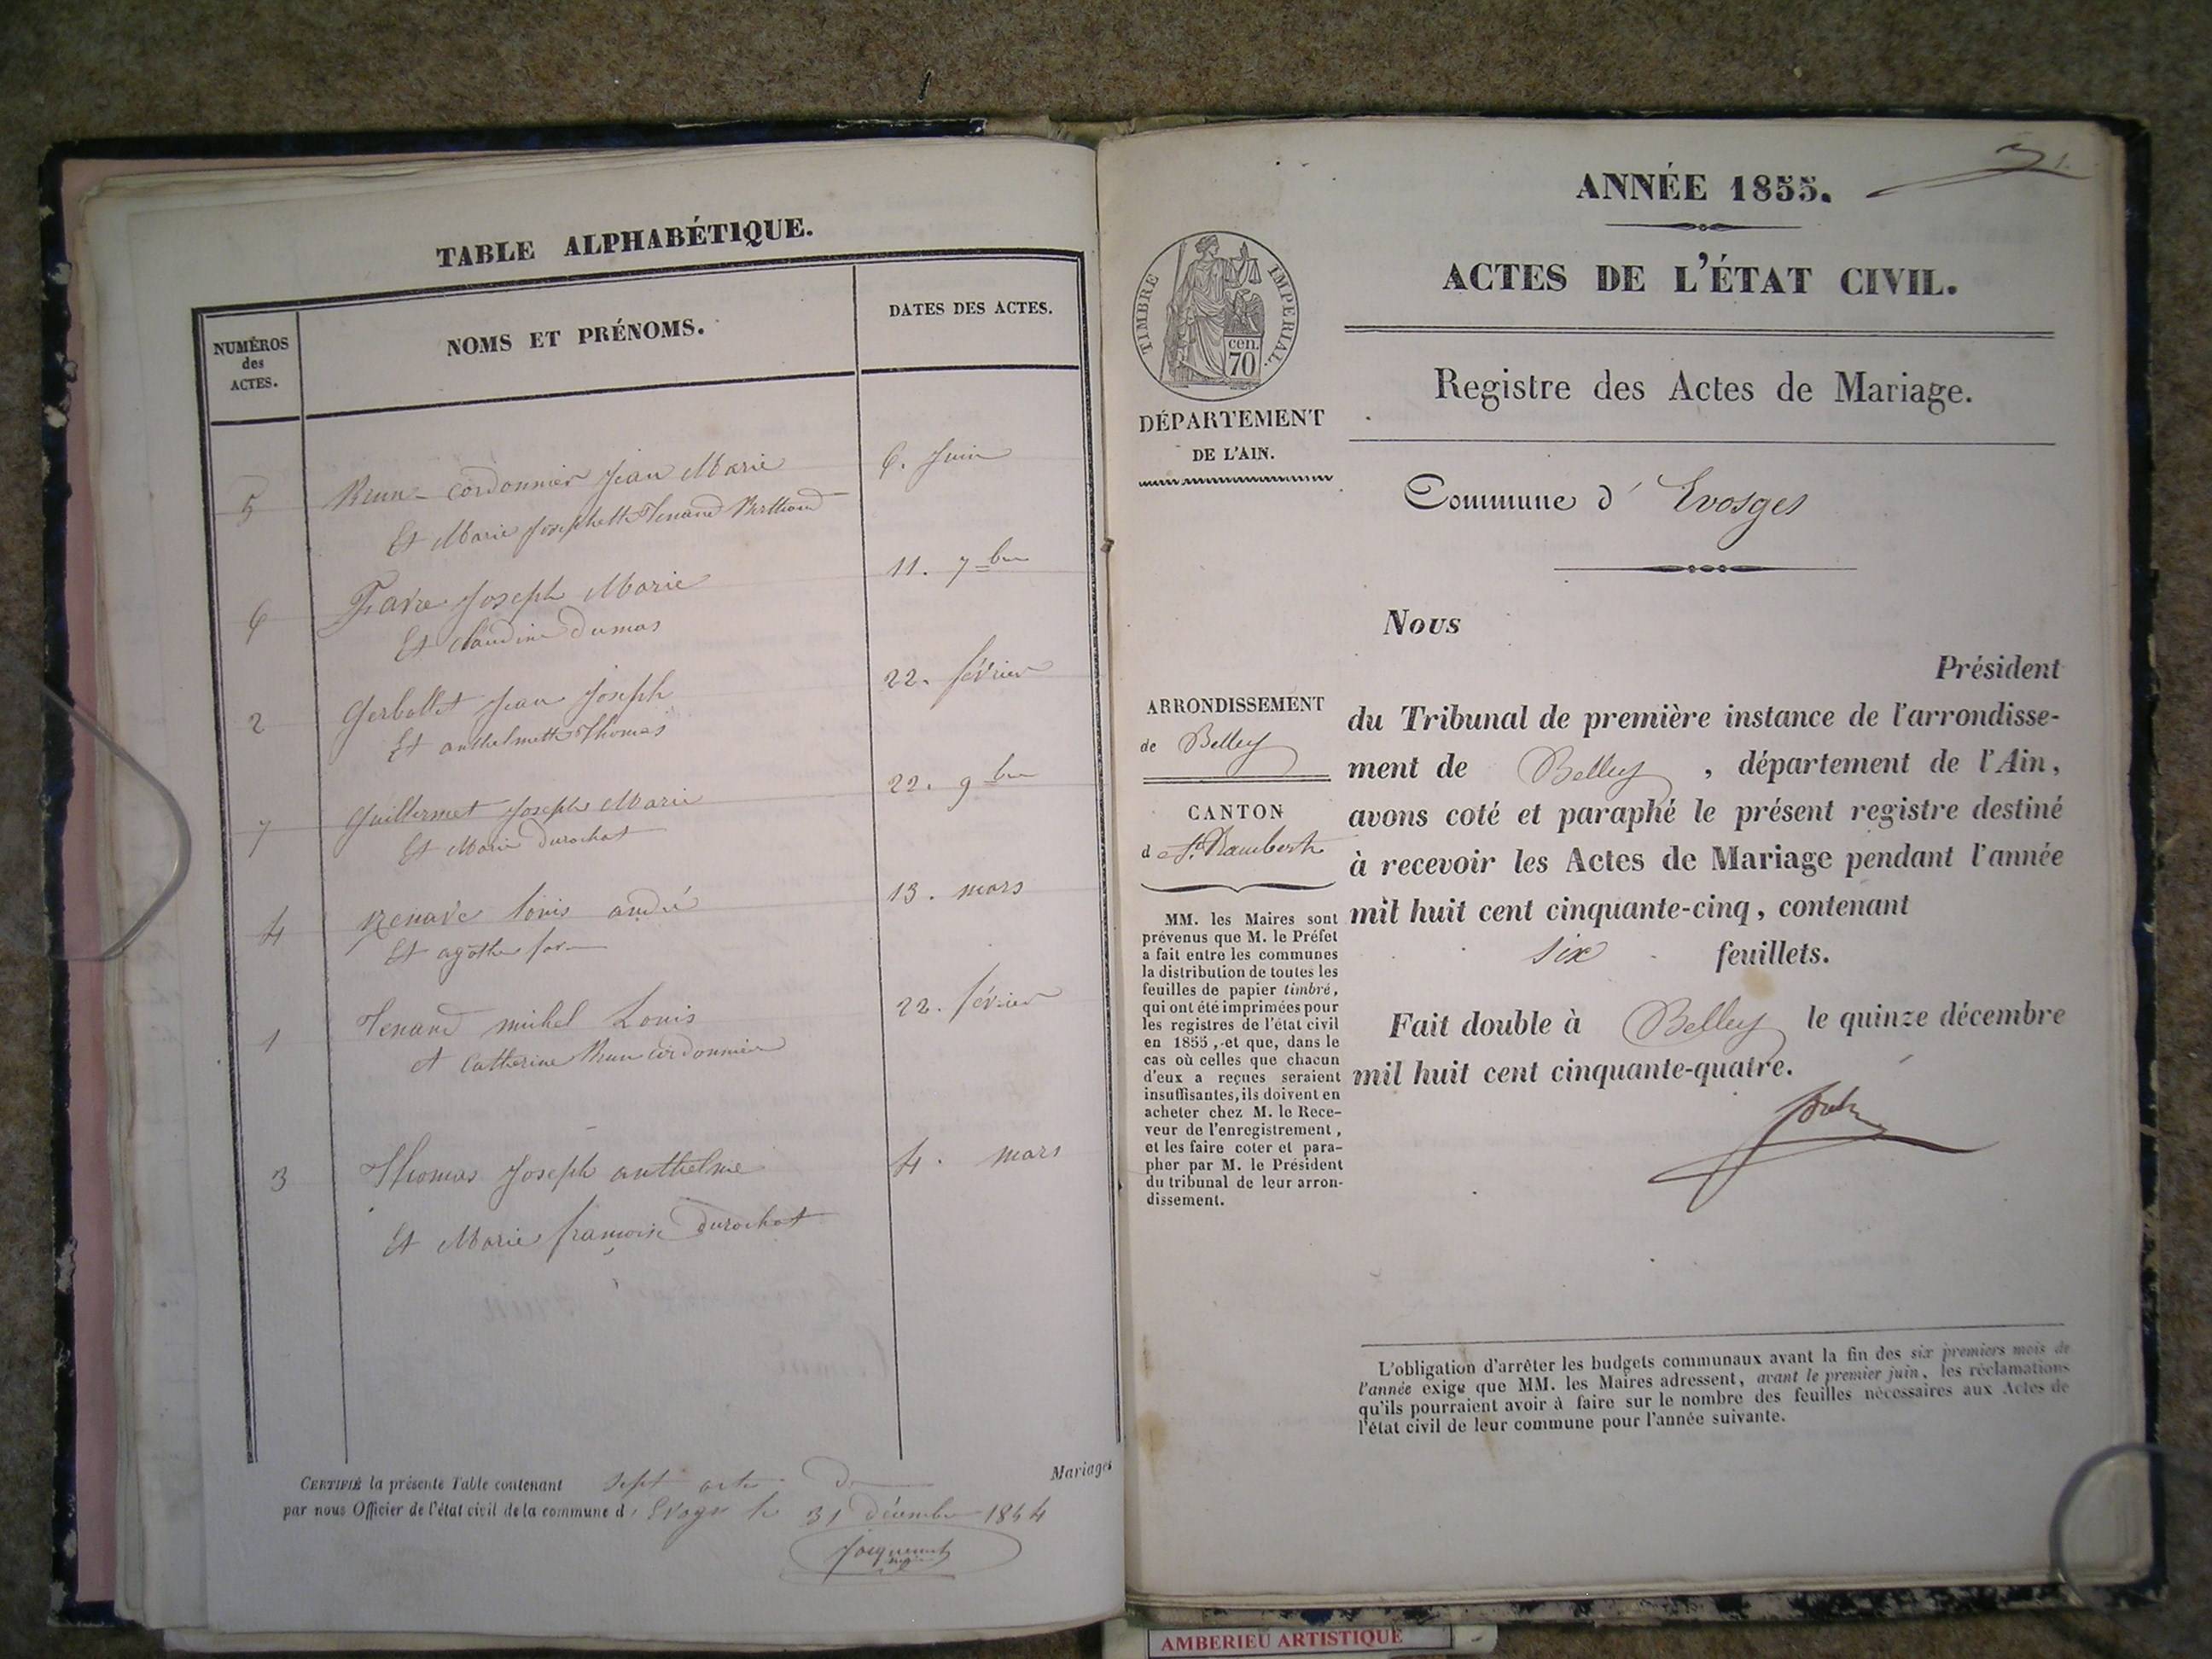 TABLE ALPHABÉTIQUE.
NUMÉROS
des
ACTES.
NOMS ET PRÉNOMS.
DATES DES ACTES.
5 Brun-cordonnier Jean Marie 6. Juin
Et Marie Josephette Tenand Berthand
6 Favre Joseph Marie 11. 7bre
Et Claudine Dumas
2 Gerbollet Jean Joseph 22. février
Et anthelmette Thomas
7 Guillermet Joseph Marie 22. 9bre
Et Marie Durochat
4 Louis andré 13. mars
Et agathe
1 Tenand michel Louis 22. février
et Catherine Brun cordonnier
3 Thomas Joseph anthelme 4. mars
Et Marie françoise Durochat
CERTIFIÉ la présente Table contenant sept actes de Mariages
par nous Officier de l'état civil de la commune d' Evoges le 31 décembre 1854
ANNÉE 1855.
ACTES DE L'ÉTAT CIVIL.
TIMBRE IMPÉRIAL.
cen.
70
Registre des Actes de Mariage.
DÉPARTEMENT
DE L'AIN.
Commune d' Evosges
Nous
Président
ARRONDISSEMENT
de Belley
CANTON
de St. Rambert
du Tribunal de première instance de l'arrondisse-
ment de Belley, département de l'Ain,
avons coté et paraphé le présent registre destiné
à recevoir les Actes de Mariage pendant l'année
mil huit cent cinquante-cinq, contenant
six feuillets.
Fait double à Belley le quinze décembre
mil huit cent cinquante-quatre.
MM. les Maires sont
prévenus que M. le Préfet
a fait entre les communes
la distribution de toutes les
feuilles de papier timbré,
qui ont été imprimées pour
les registres de l'état civil
en 1855, et que, dans le
cas où celles que chacun
d'eux a reçues seraient
insuffisantes, ils doivent en
acheter chez M. le Rece-
veur de l'enregistrement,
et les faire coter et para-
pher par M. le Président
du tribunal de leur arron-
dissement.
L'obligation d'arrêter les budgets communaux avant la fin des six premiers mois de
l'année exige que MM. les Maires adressent, avant le premier juin, les réclamations
qu'ils pourraient avoir à faire sur le nombre des feuilles nécessaires aux Actes de
l'état civil de leur commune pour l'année suivante.
AMBERIEU ARTISTIQUE